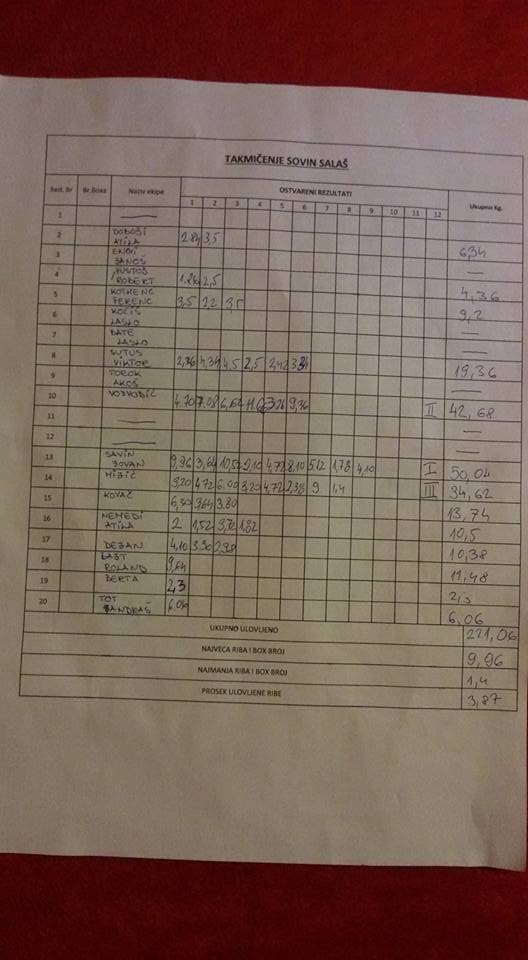 TAKMIČENJE SOVIN SALAŠ
Red. Br Br.Boxa Naziv ekipe OSTVARENI REZULTATI Ukupno Kg.
1 2 3 4 5 6 7 8 9 10 11 12
1 —
2 DOBOŠI ATILA 2.84 3,5 6,34
3 JANOŠ —
4 ROBERT 1.86 2,5 4,36
5 KOTRENC FERENC 3,5 2,2 3,5 9,2
6 KOČIŠ LASLO
7 LASLO
8 ŠUTUŠ VIKTOR 2,36 4,34 4,5 2,5 2,42 19,36
9 TOROK AKOŠ —
10 4.70 7.08 6,62 9,36 II 42,68
11 — —
12 — —
13 SAVIN JOVAN 9,96 3,64 10,52 2,10 4,72 8,10 5,12 1,78 4,10 I 50,04
14 9,20 4,72 6,00 3,20 4,72 2,38 9 1,4 III 34,62
15 KOVAČ 6,30 3,64 3,80 13,74
16 NEMEDI ATILA 2 1,52 1,82 10,5
17 DEJAN 4,10 3.30 2,98 10,38
18 ROLAND 9,64 11,48
19 BERTA 2,3 2,3
20 TOT 6,06 6,06
UKUPNO ULOVLJENO 221,06
NAJVEĆA RIBA I BOX BROJ 9,96
NAJMANJA RIBA I BOX BROJ 1,4
PROSEK ULOVLJENE RIBE 3,87